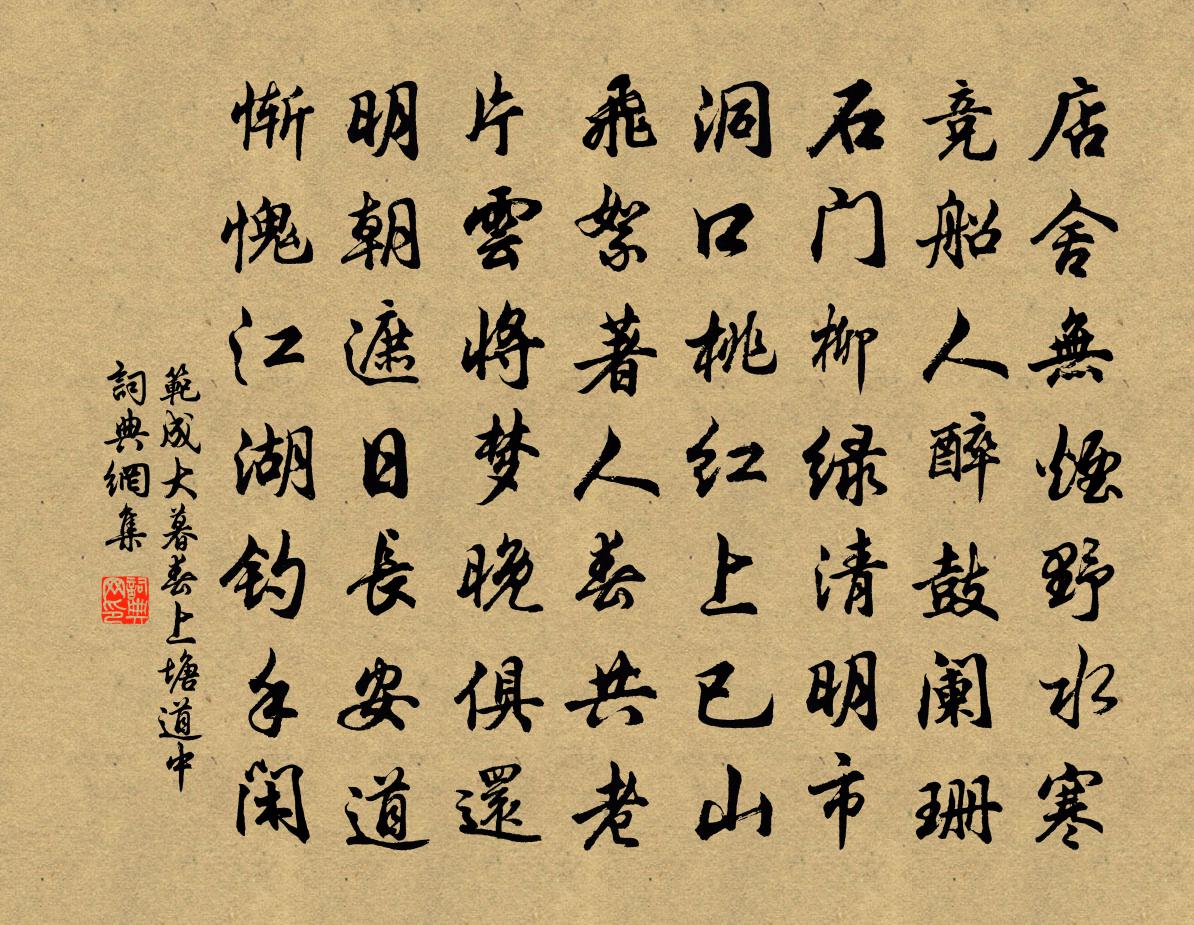 店舍無煙野水寒
竞船人醉鼓阑珊
石门柳绿清明市
洞口桃红上已山
飛絮著人春共老
片雲將梦晚俱還
明朝遮日長安道
惭愧江湖钓手閑
範成大暮春上塘道中
詞典網集
詞典网印